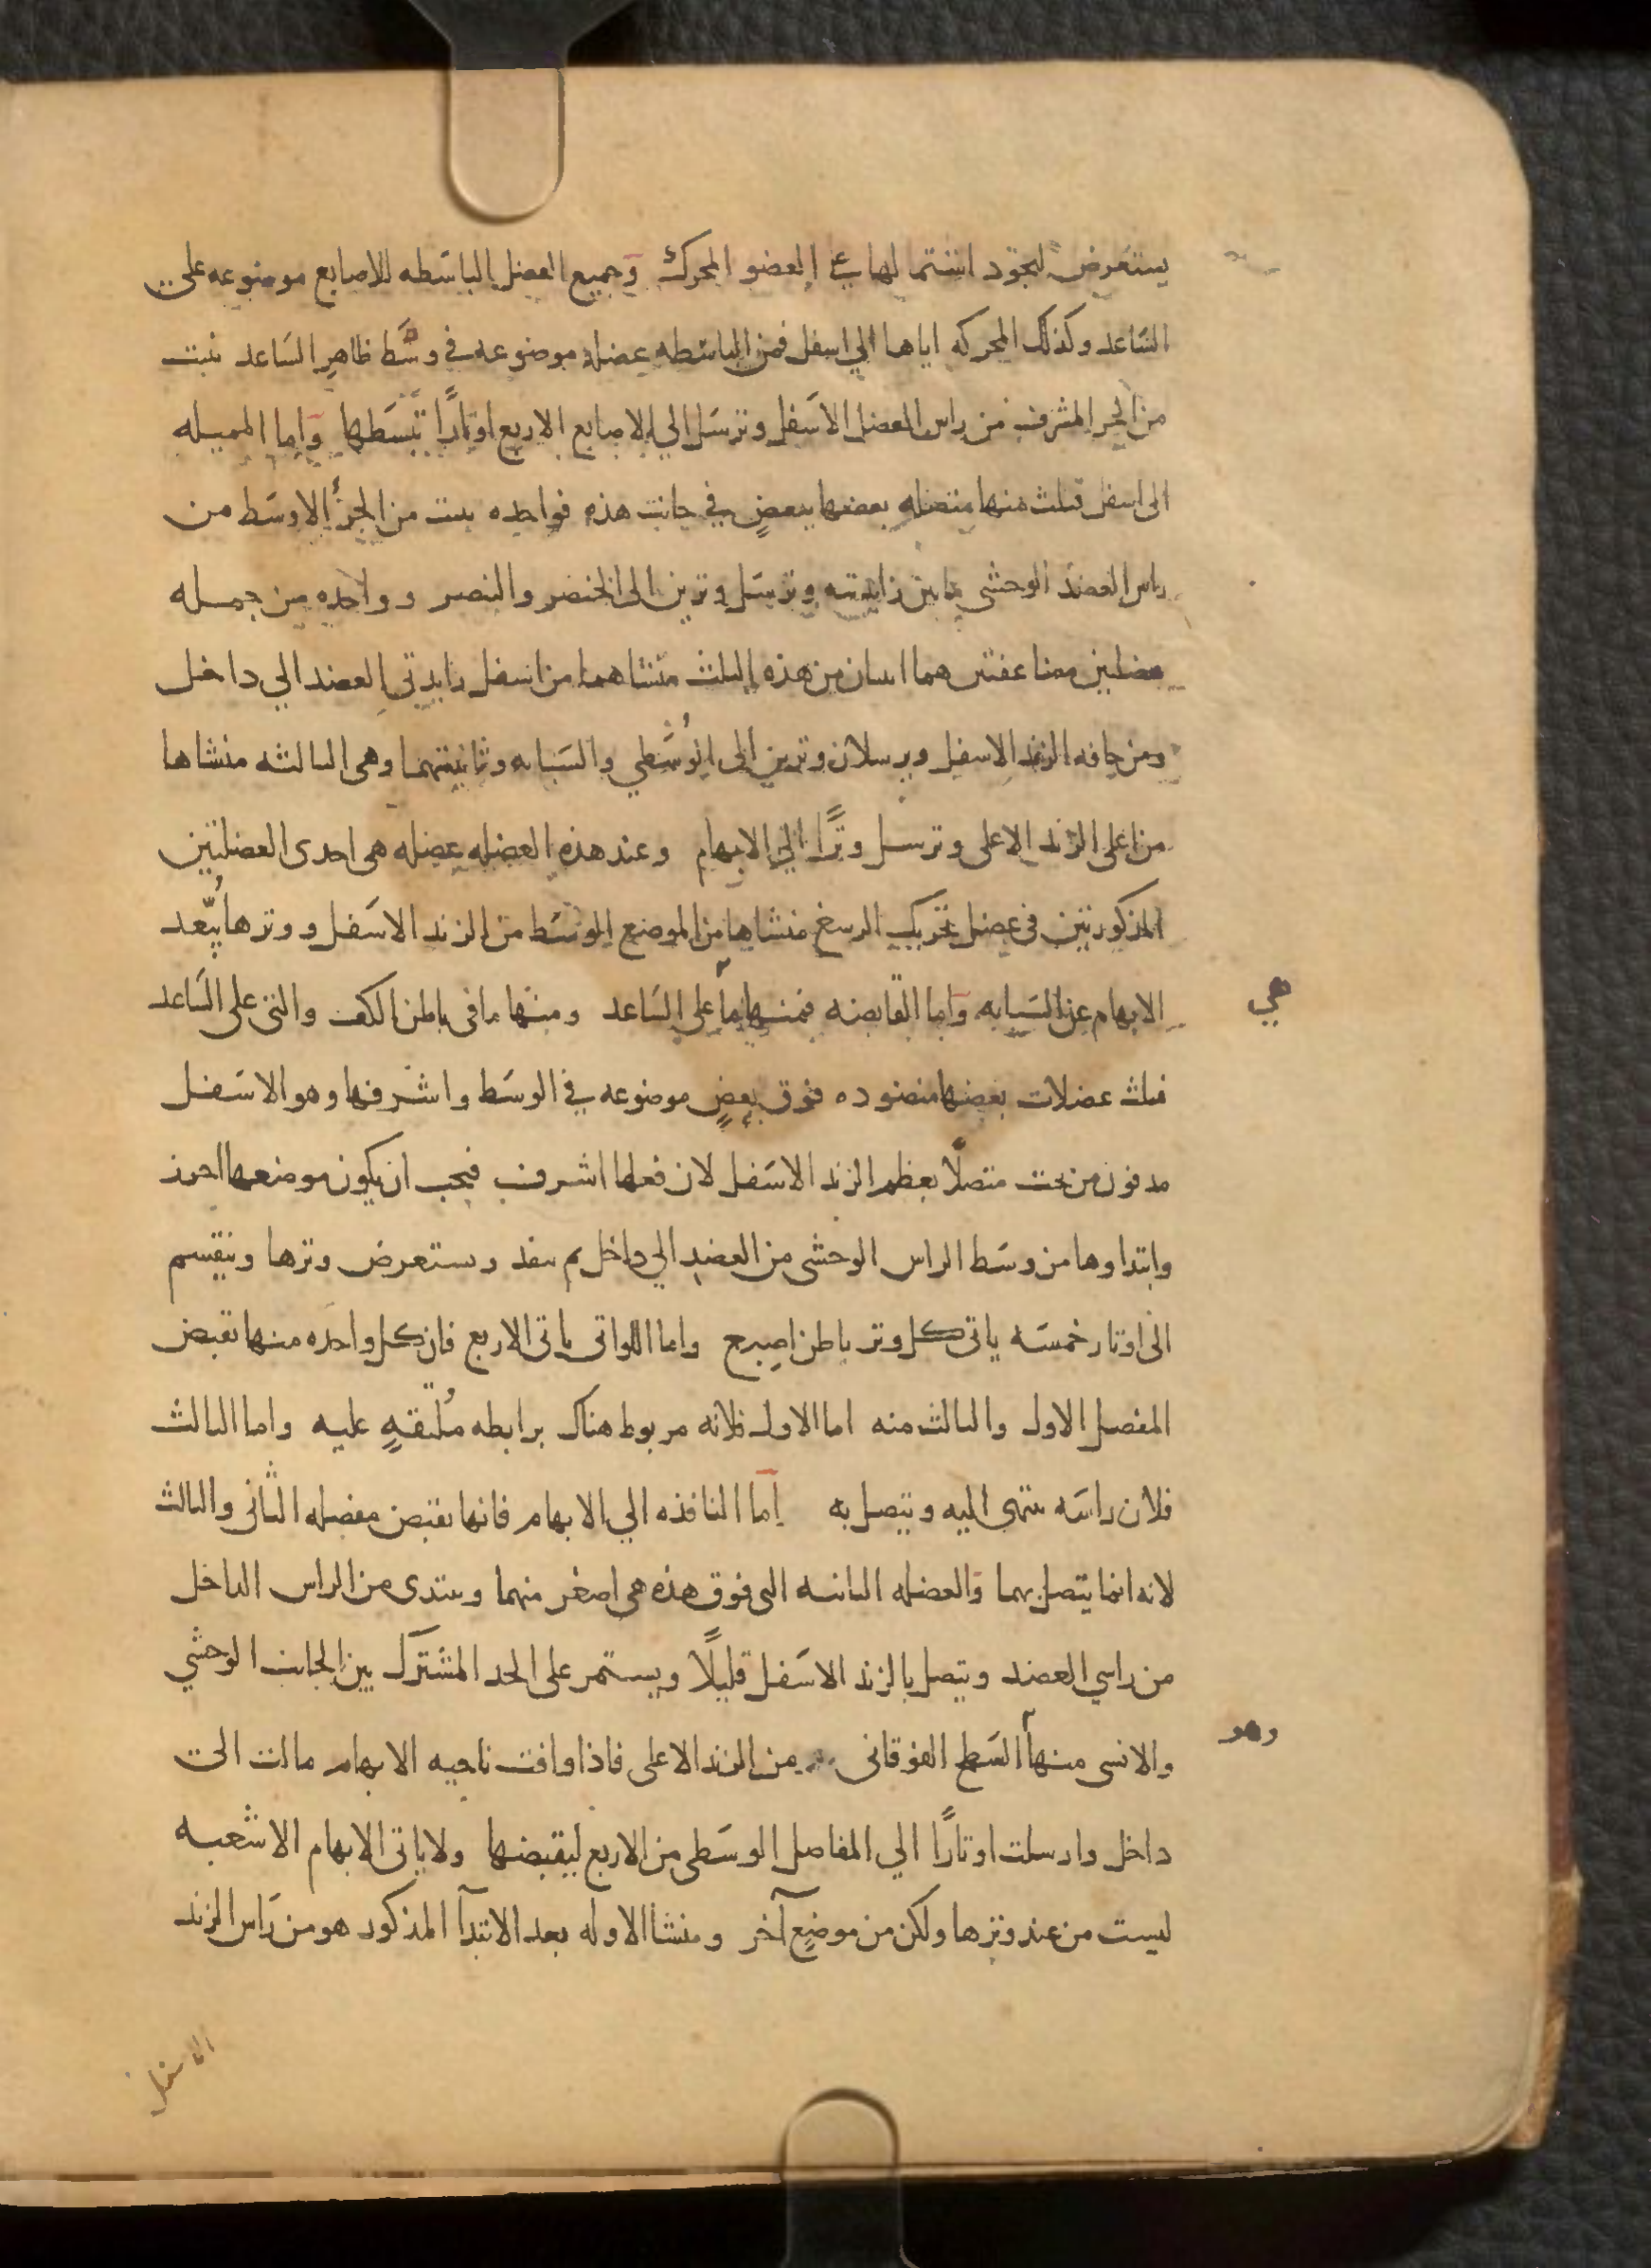 يستعرض لتجود اشتمالها على العضو المحرك وجميع العضل الباسطه للاصابع موضوعه على
الساعد وكذلك المحركه اياها الي اسفل فمن الباسطه عضله موضوعه في وسط ظاهر الساعد تنبت
من الجز المشرف من راس العضد الاسفل وترسل الي الاصابع الاربع اوتارًا تبسطها واما المميله
الى اسفل فثلث منها متصله بعضها ببعضٍ في جانب هذه فواحده تنبت من الجزء الاوسط من
راس العضد الوحشى ما بين زايدتيه وترسل وترين الى الخنصر والبنصر وواحده من جمله
عضلتين مضاعفتين هما اثنتان من هذه الثلث منشاهما من اسفل زايدتي العضد الي داخل
ومن حافه الزند الاسفل ويرسلان وترين الى الوُسطي والسبابه وثانيتهما وهى الثالثه منشاها
من اعلى الزند الاعلى وترسل وترًا الي الابهام وعند هذه العضله عضله هى احدى العضلتين
المذكورتين في عضل تحريك الرسغ منشاها من الموضع الوسط من الزند الاسفل ووترها يُبّعد
الابهام عن السبابه واما القابضه فمنها ما على الساعد ومنها ما فى باطن الكف والتى على الساعد
هي
ثلث عضلات بعضها منضوده فوق بعضٍ موضوعه في الوسط واشرفها وهو الاسفل
مدفون من تحت متصلًا بعظم الزند الاسفل لان فعلها اشرف فيجب ان يكون موضعها احرز
وابتداوها من وسط الراس الوحشى من العضد الي داخل ثم ينفذ ويستعرض وترها وينقسم
الى اوتار خمسه ياتى كل وتر باطن اصبع واما اللواتى ياتى الاربع فان كل واحده منها تقبض
المفصل الاول والثالث منه اما الاول فلانه مربوط هناك برابطه مُلتفةٍ عليه واما الثالث
فلان راسه ينتهى اليه ويتصل به اما النافذه الي الابهام فانها تقبض مفصله الثانى والثالث
لانه انما يتصل بهما والعضله الثانيه التى فوق هذه هى اصغر منهما ويبتدى من الراس الداخل
من راسي العضد ويتصل بالزند الاسفل قليلًا ويستمر على الحد المشترك بين الجانب الوحشي
والانسى منها السطح الفوقانى من الزند الاعلى فاذا وافت ناحيه الابهام مالت الى
وهو
داخل وارسلت اوتارًا الي المفاصل الوسطى من الاربع ليقبضها ولا ياتى الابهام الا شعبه
ليست من عند وترها ولكن من موضعٍ آخر ومنشا الاوله بعد الابتدآ المذكور هو من راس الزند
الاسفل